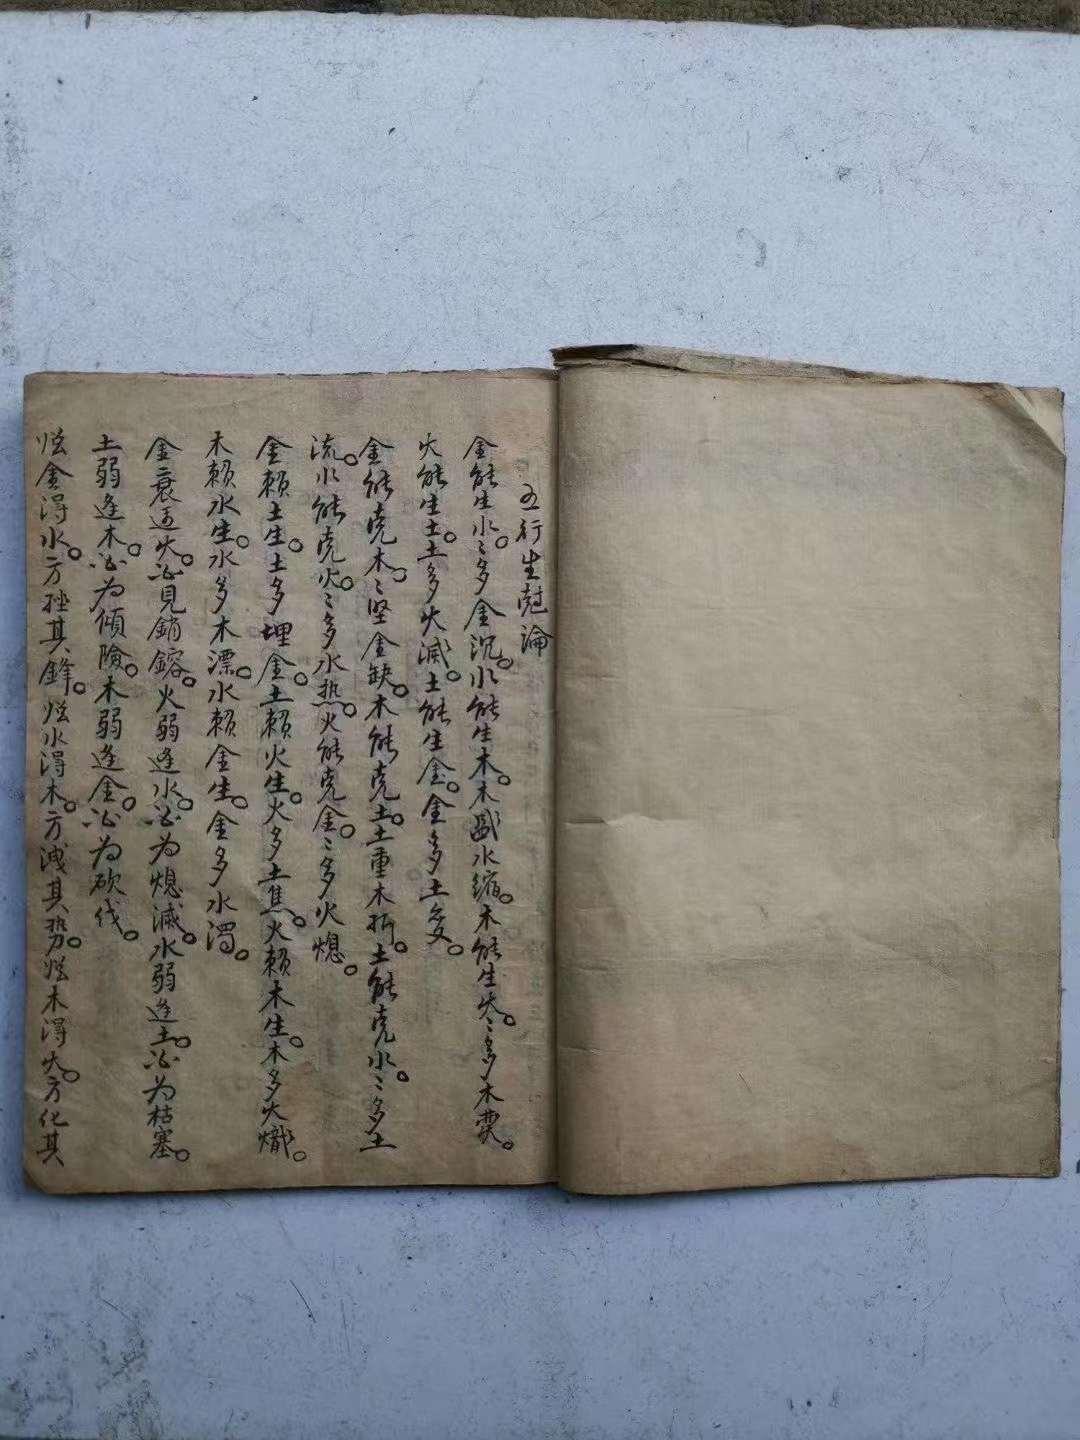 五行生尅論
金能生水。〻多金沉。水能生木。木盛水缩。木能生火。〻多木焚。
火能生土。土多火滅。土能生金。金多土変。
金能克木。〻坚金缺。木能克土。土重木折。土能克水。〻多土
流。水能克火。〻多水热。火能克金。〻多火熄。
金賴土生。土多埋金。土賴火生。火多土焦。火賴木生。木多火熾。
木賴水生。水多木漂。水賴金生。金多水濁。
金衰适火。必見銷鎔。火弱逢水。必为熄滅。水弱逢土。必为枯塞。
土弱逢木。必为傾險。木弱逢金。必为砍伐。
金得水。方挫其鋒。水得木。方洩其势。木得火。方化其